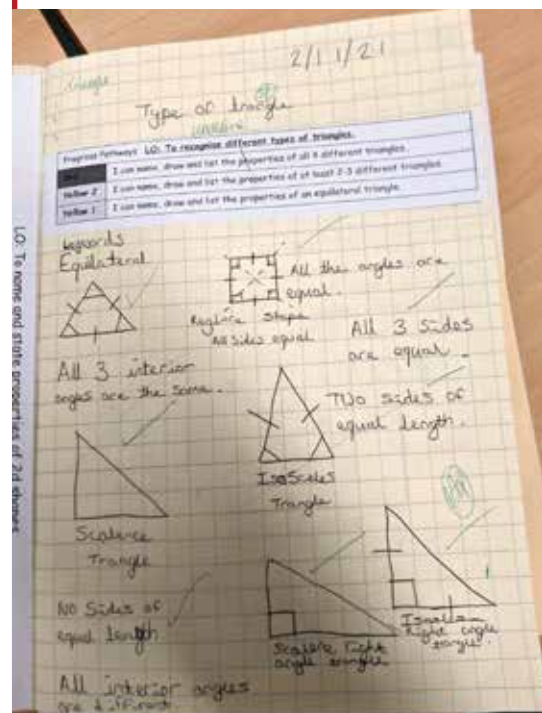 2/11/21
triangle
Type of triangle
Progress Pathways LO: To recognise different types of triangles.
I can name, draw and list the properties of all 4 different triangles.
Yellow 2 I can name, draw and list the properties of at least 2-3 different triangles
Yellow 1 I can name, draw and list the properties of an equilateral triangle.
LO: To name and state properties of 2d shapes
keywords
Equilateral
All the angles are
equal.
Reglare shape
All sides equal
All 3 sides
are equal.
All 3 interior
angles are the same.
Two sides of
equal length.
Isoscles
Trangle
Scalence
Trangle
No sides of
equal length
Scalene right
angle triangle
Right angle
All interior angles
are different